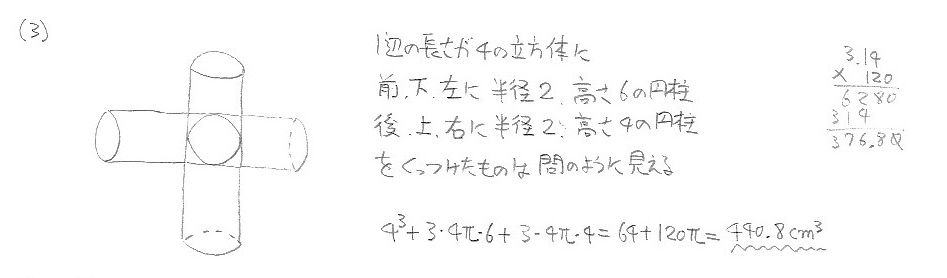 (3)
1辺の長さが4の立方体に
前、下、左に半径2、高さ6の円柱
後、上、右に半径2、高さ4の円柱
をくっつけたものは問のように見える
4³+3・4π・6+3・4π・4=64+120π=440.8cm³
3.14
× 120
6280
314
376.80